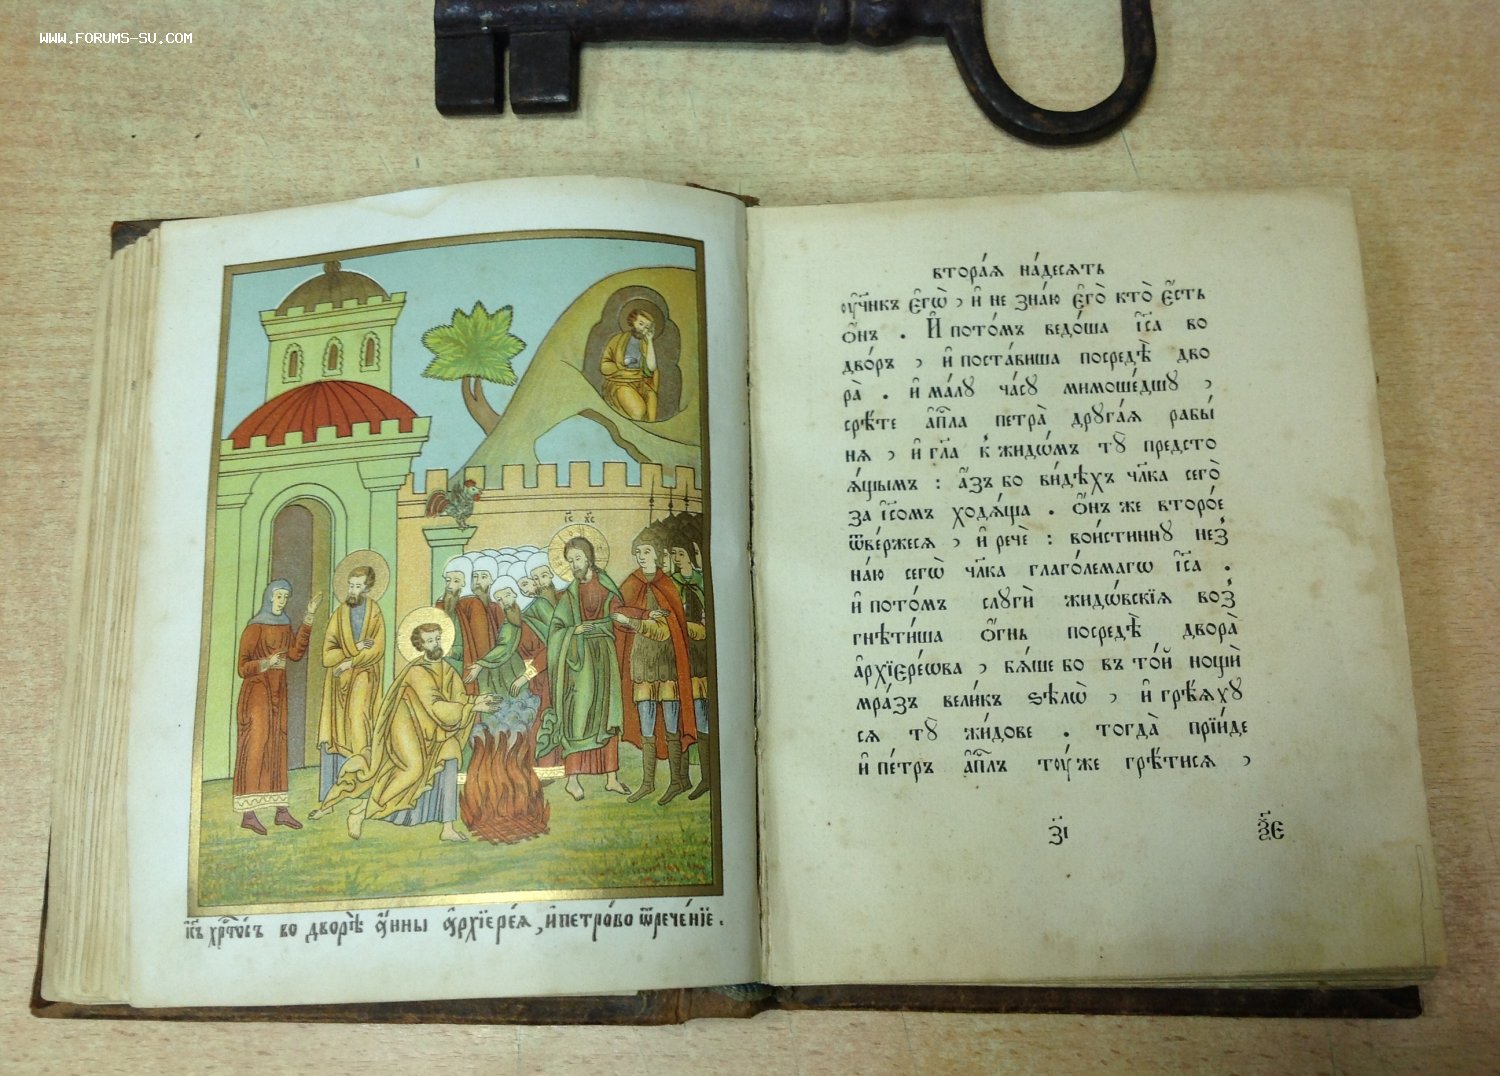 WWW.FORUMS-SU.COM
І҃С Х҃С
І҆с҃ъ хрⷭ҇то́съ во дворѣ̀ а҆́нны а҆рхїере́а, и҆ петро́во ѿрече́нїе.
втора́ѧ на́десѧть
ѹ҆ч҃нкъ є҆гѡ̀, и҆ не зна́ю є҆го̀ кто̀ є҆́сть
ѻ҆́нъ . И҆ пото́мъ ведо́ша і҆с҃а во
дво́ръ , и҆ поста́виша посредѣ̀ дво
ра̀ . и҆ ма́лꙋ ча́сꙋ мимоше́дшꙋ ,
срѣ́те а҆пⷭ҇ла петра̀ дрꙋга́ѧ рабы́
нѧ , и҆ гл҃а к жидѡ́мъ тꙋ̀ предсто
ѧ́щымъ : а҆́зъ бо ви́дѣхъ чл҃ка сего̀
за і҆с҃омъ ходѧ́ща . ѻ҆́нъ же второ́е
ѿве́ржесѧ , и҆ речѐ : вои́стиннꙋ нез
на́ю сегѡ̀ чл҃ка глаго́лемагѡ і҆с҃а .
и҆ пото́мъ слꙋгѝ жидѡ́вскїѧ воз
гнѣти́ша ѻ҆́гнь посредѣ̀ двора̀
а҆рхїере́ѡва , бѧ́ше бо въ то́й нощѝ
мра́зъ вели́къ ѕѣлѡ̀ , и҆ грѣ́ѧхꙋ
сѧ тꙋ̀ жи́дове . тогда̀ прїи́де
и҆ пе́тръ а҆пⷭ҇лъ тоу́же грѣ́тисѧ ,
з҃і